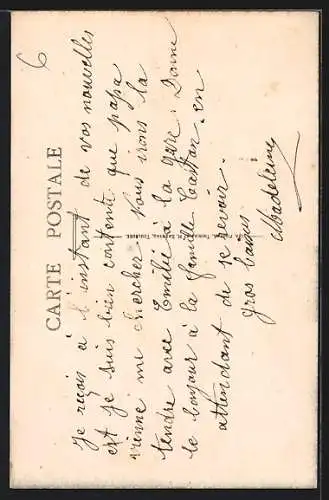 6
CARTE POSTALE
Je reçois à l'instant de vos nouvelles
et je suis bien contente que papa
vienne me chercher. Nous irons la
tendre avec Emilie à la gare. Donne
le bonjour à la famille en
attendant de te revoir.
Gros baisers
Madeleine